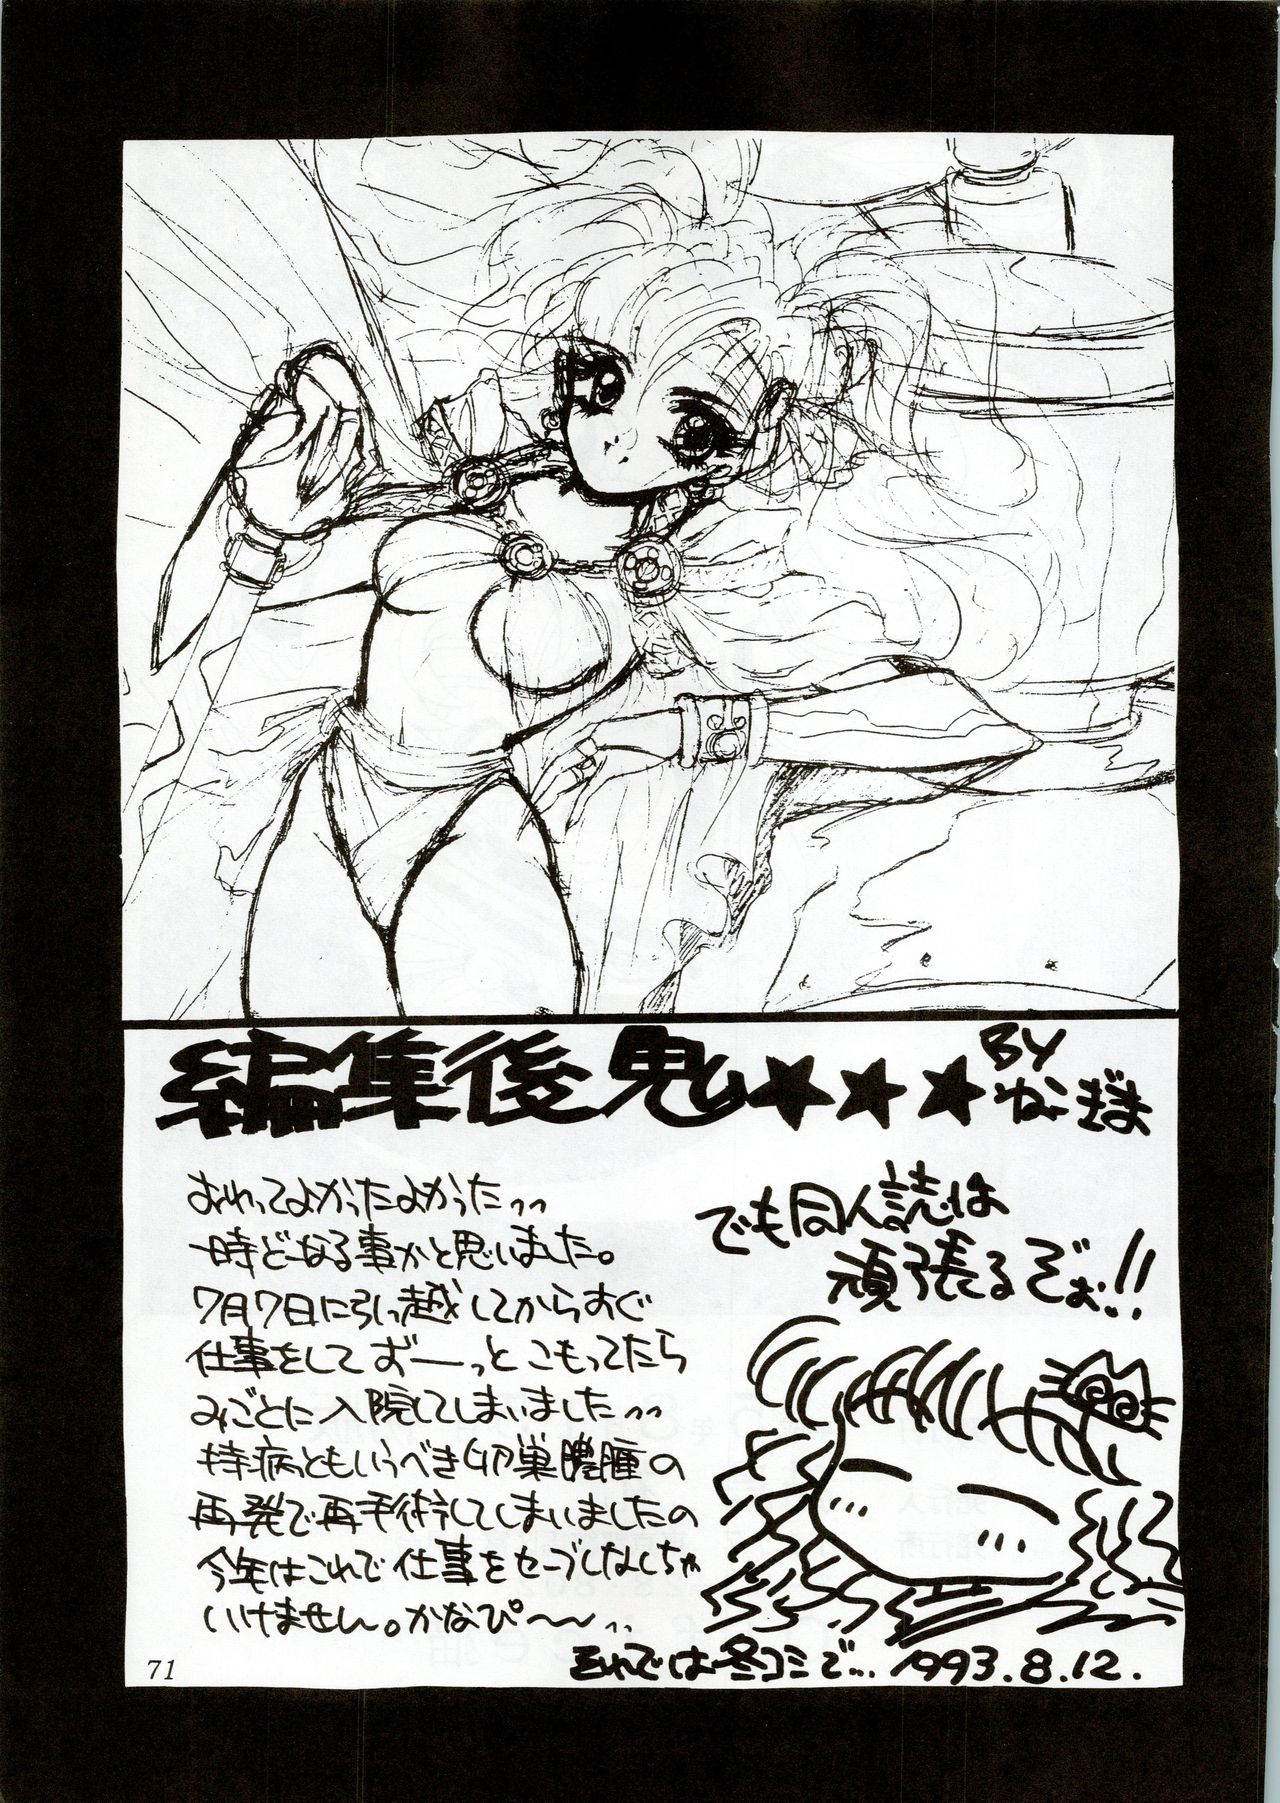 編集後鬼★★★
BY
ねーぎま
おわってよかったよかった〃
一時どーなる事かと思いました。
7月7日に引っ越してからすぐ
仕事をしてずーーっとこもってたら
みごとに入院してしまいました〃
持病ともいうべき卵巣膿腫の
再発で再手術してしまいましたの
今年はこれで仕事をセーブしなしちゃ
いけません。かなぴ〜〜〃
でも同人誌は
頑張るぞぉ!!
それでは冬コミで… 1993.8.12.
71